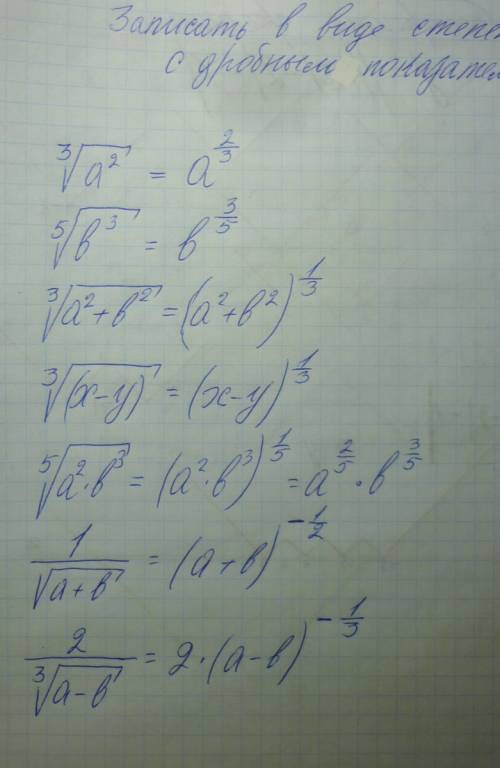 Записать в виде степен
с дробным показател
∛a² = a^(2/3)
⁵√b³ = b^(3/5)
∛(a²+b²) = (a²+b²)^(1/3)
∛(x-y) = (x-y)^(1/3)
⁵√(a²·b³) = (a²·b³)^(1/5) = a^(2/5)·b^(3/5)
1/√(a+b) = (a+b)^(-1/2)
2/∛(a-b) = 2·(a-b)^(-1/3)